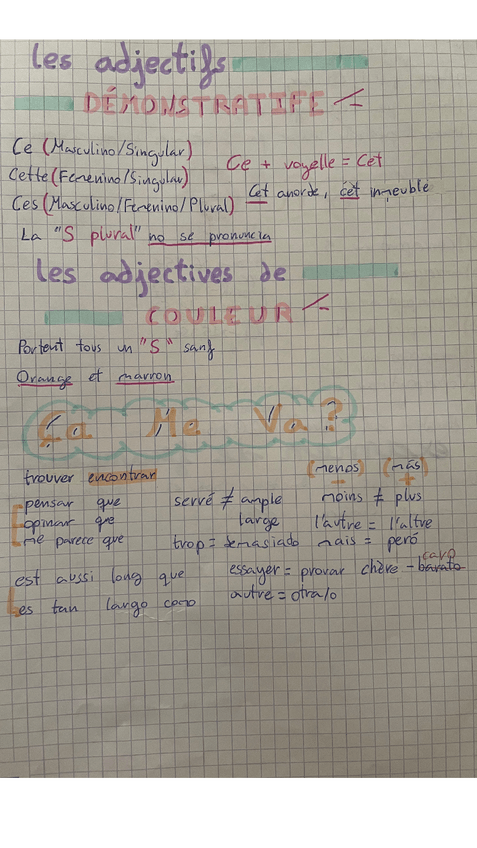 Les adjectifs
DÉMONSTRATIFE
Ce (Masculino/Singular)
Cette (Femenino/Singular)
Ces (Masculino/Femenino/Plural)
Ce + voyelle = Cet
Cet anorde, cet immeuble
La "S plural" no se pronuncia
les adjectives de
COULEUR
Portent tous un "S" sanf
Orange et marron
Ça Me Va?
trouver encontrar
pensar que
opinar que
me parece que
est aussi long que
es tan largo como
(menos) (más)
- +
serré ≠ ample moins ≠ plus
large l'autre = l'altre
trop = demasiado mais = peró
caro
essayer = provar chère - barato
autre = otra/o